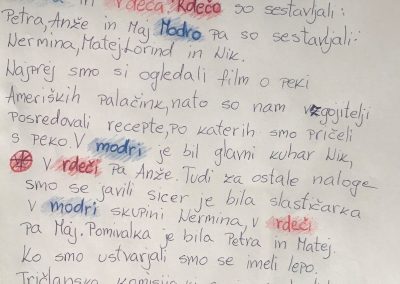 in rdeča. Rdečo so sestavljali:
Petra, Anže in Maj. Modro pa so sestavljali:
Nermina, Matej, Lorind in Nik.
Najprej smo si ogledali film o peki
Ameriških palačink, nato so nam vzgojitelji
posredovali recepte, po katerih smo pričeli
s peko. V modri je bil glavni kuhar Nik,
v rdeči pa Anže. Tudi za ostale naloge
smo se javili sicer je bila slastičarka
v modri skupini Nermina, v rdeči
pa Maj. Pomivalka je bila Petra in Matej.
Ko smo ustvarjali smo se imeli lepo.
Tričlanska komisija